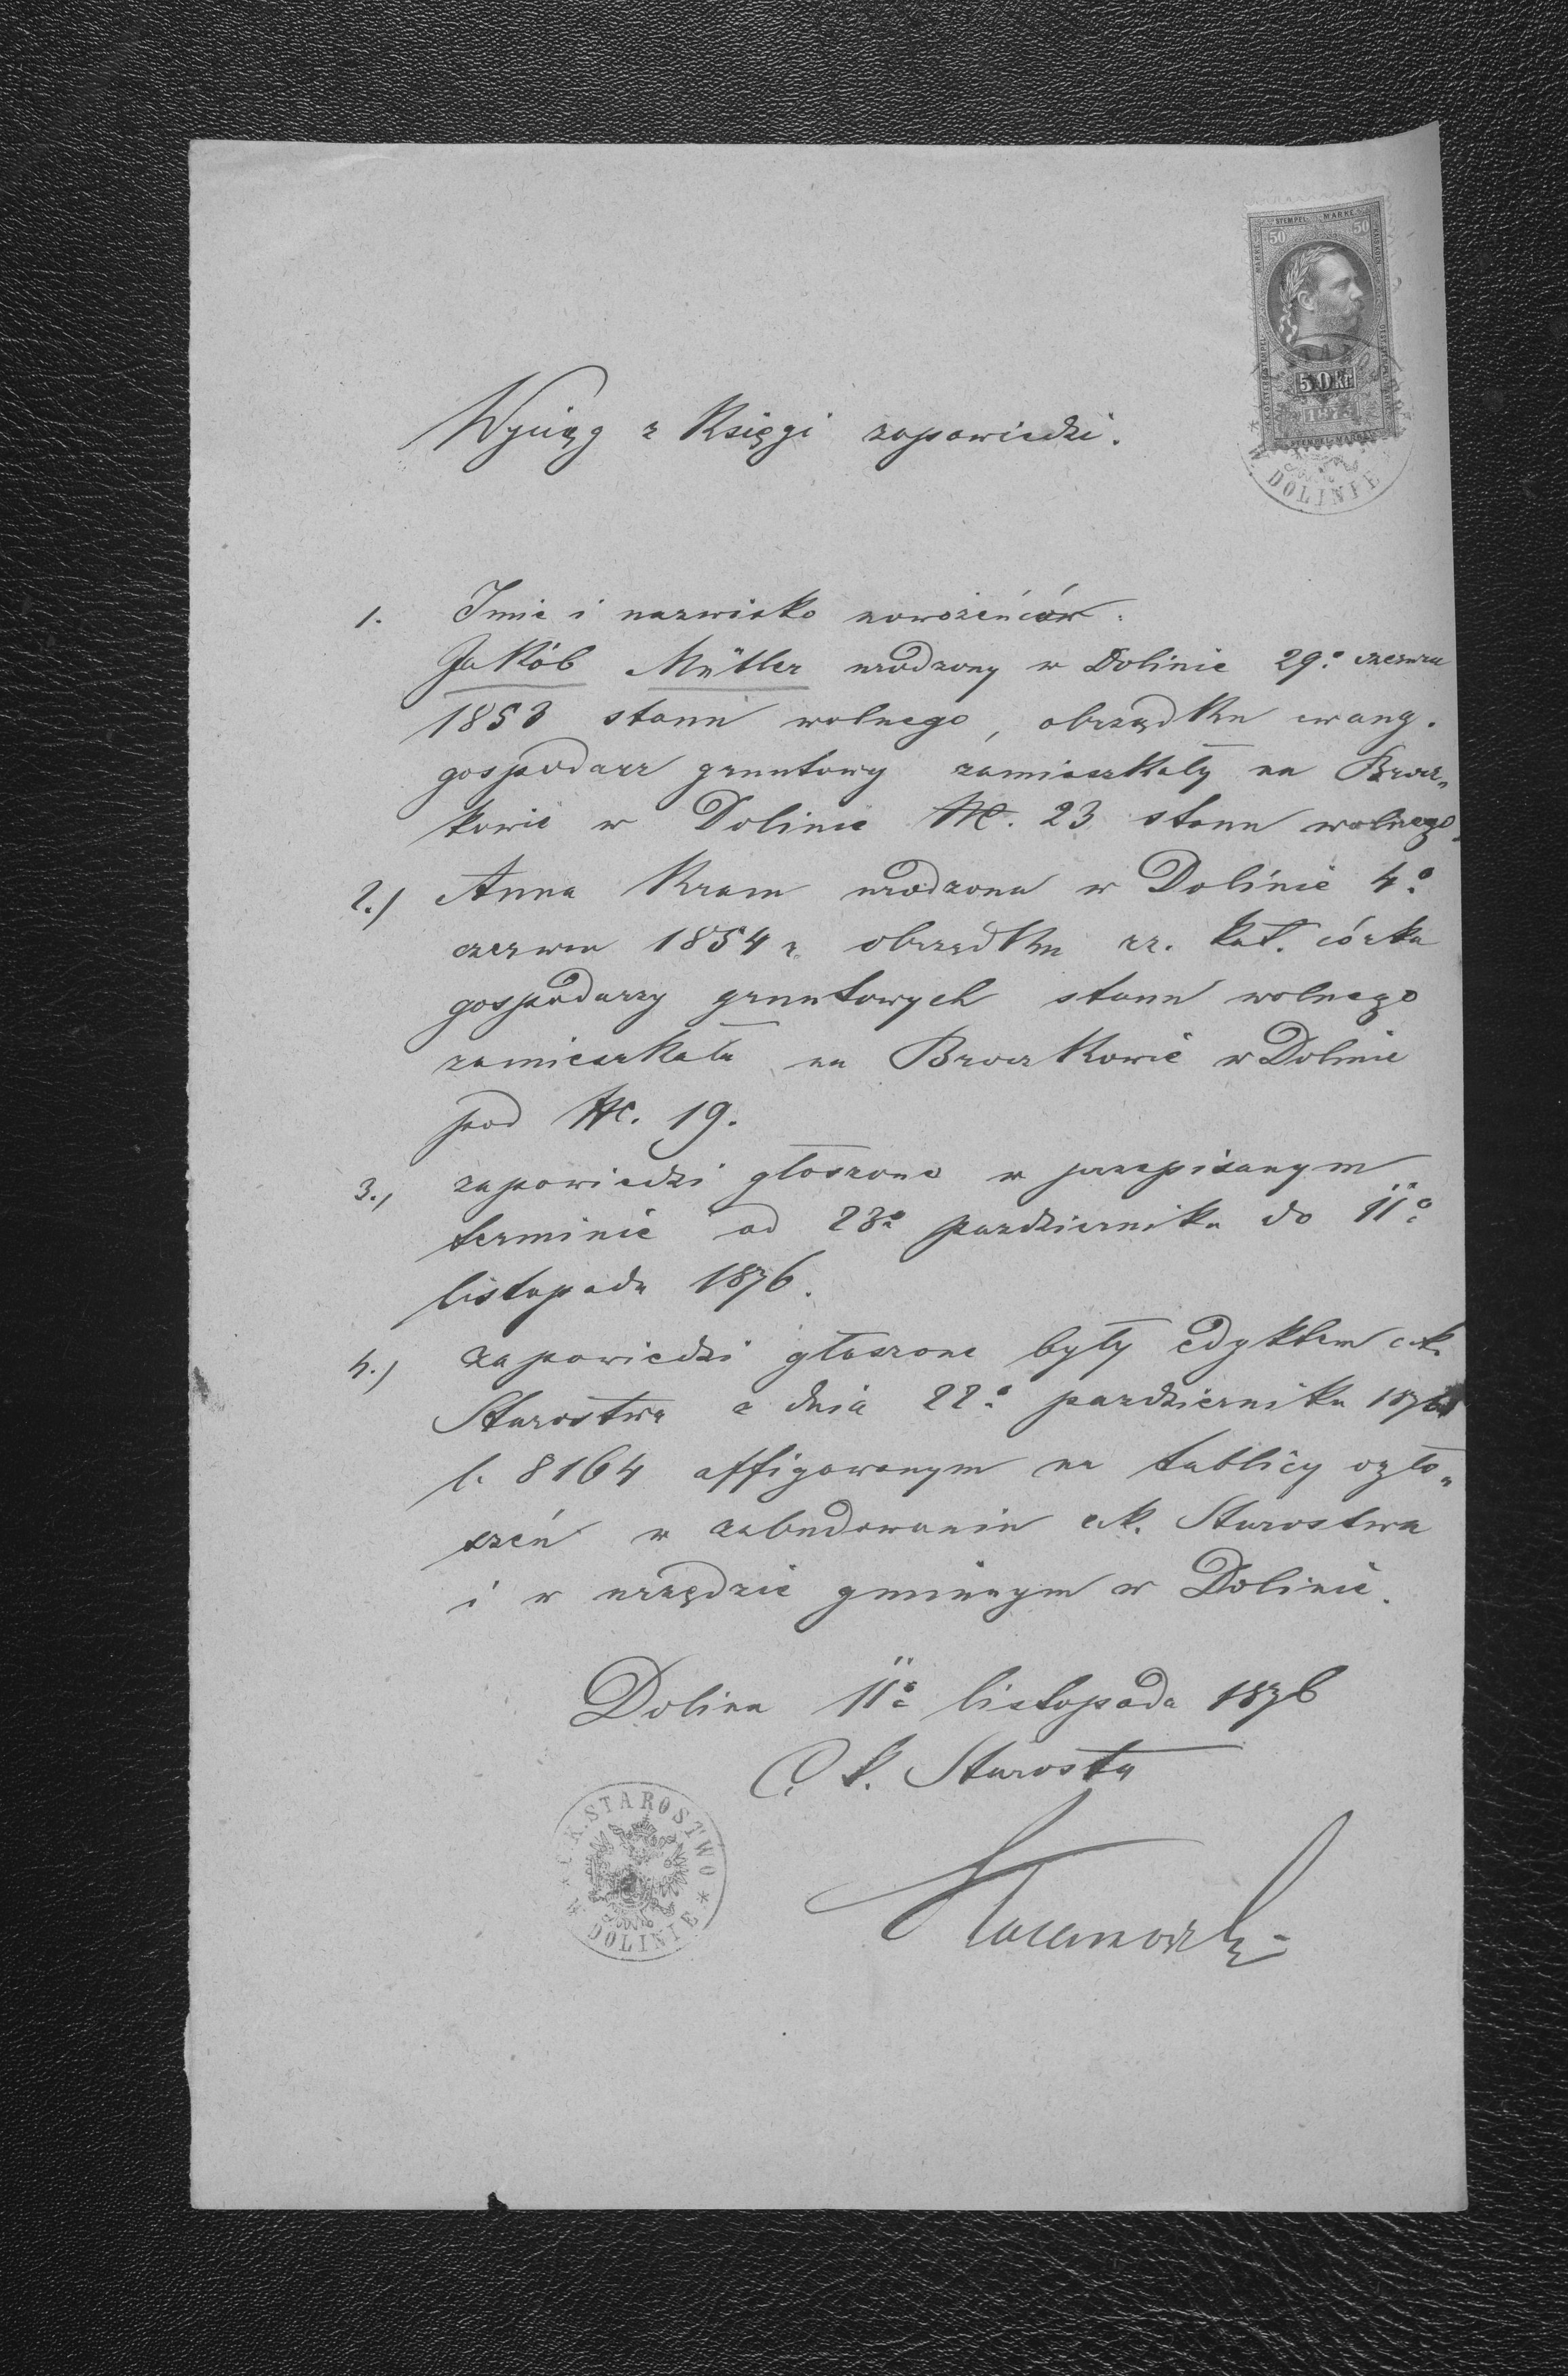 STEMPEL MARKE
50 50
50 Kr
1875
DOLINIE
Wyciąg z Księgi zapowiedzi.
1. Imie i nazwisko nowożeńców.
Jakób Müller urodzony w Dolinie 29º czerwca
1853 stanu wolnego, obrządku ewang.
gospodarz gruntowy zamieszkały na Brocz„
kowie w Dolinie Nc. 23 stanu wolnego,
2.) Anna Kram urodzona w Dolinie 4º
czerwca 1854 r. obrządku rz. kat. córka
gospodarzy gruntowych stanu wolnego
zamieszkała na Broczkowie w Dolinie
pod Nc. 19.
3.) zapowiedzi głoszone w przepisanym
terminie od 23º pazdziernika do 11º
listopada 1876.
4.) zapowiedzi głoszone były edyktem c.k.
Starostwa z dnia 22º pazdziernika 1876
l. 8164 affigowanym na tablicy ogło„
szeń w zabudowaniu c.k. Starostwa
i w urzędzie gminnym w Dolinie.
Dolina 11º listopada 1876
C. k. Starosta
C. K. STAROSTWO
W DOLINIE